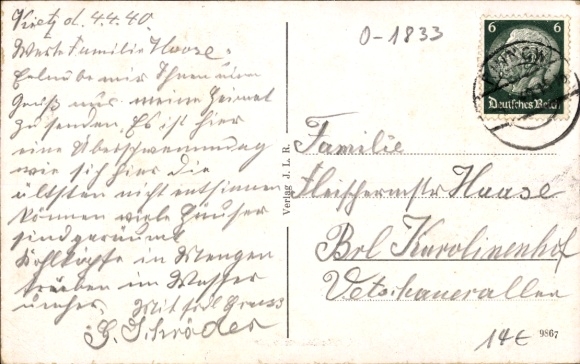 Kietz d. 4.4.40.
Werte Familie Haase.
Erlaube mir Ihnen einen
Gruß aus meine Heimat
zu senden. Es ist hier
eine Überschwemmung
wie sich hier die
ältsten nicht entsinnen
können viele Häuser
sind geräumt
Kohlköpfe in Mengen
treiben im Wasser
umher. Mit frdl Gruss
G. Schröder
O-1833
6 6
Deutsches Reich
Verlag J. L. R.
Familie
Fleischermstr Haase
Brl Karolinenhof
Vetschauerallee
14€
9867